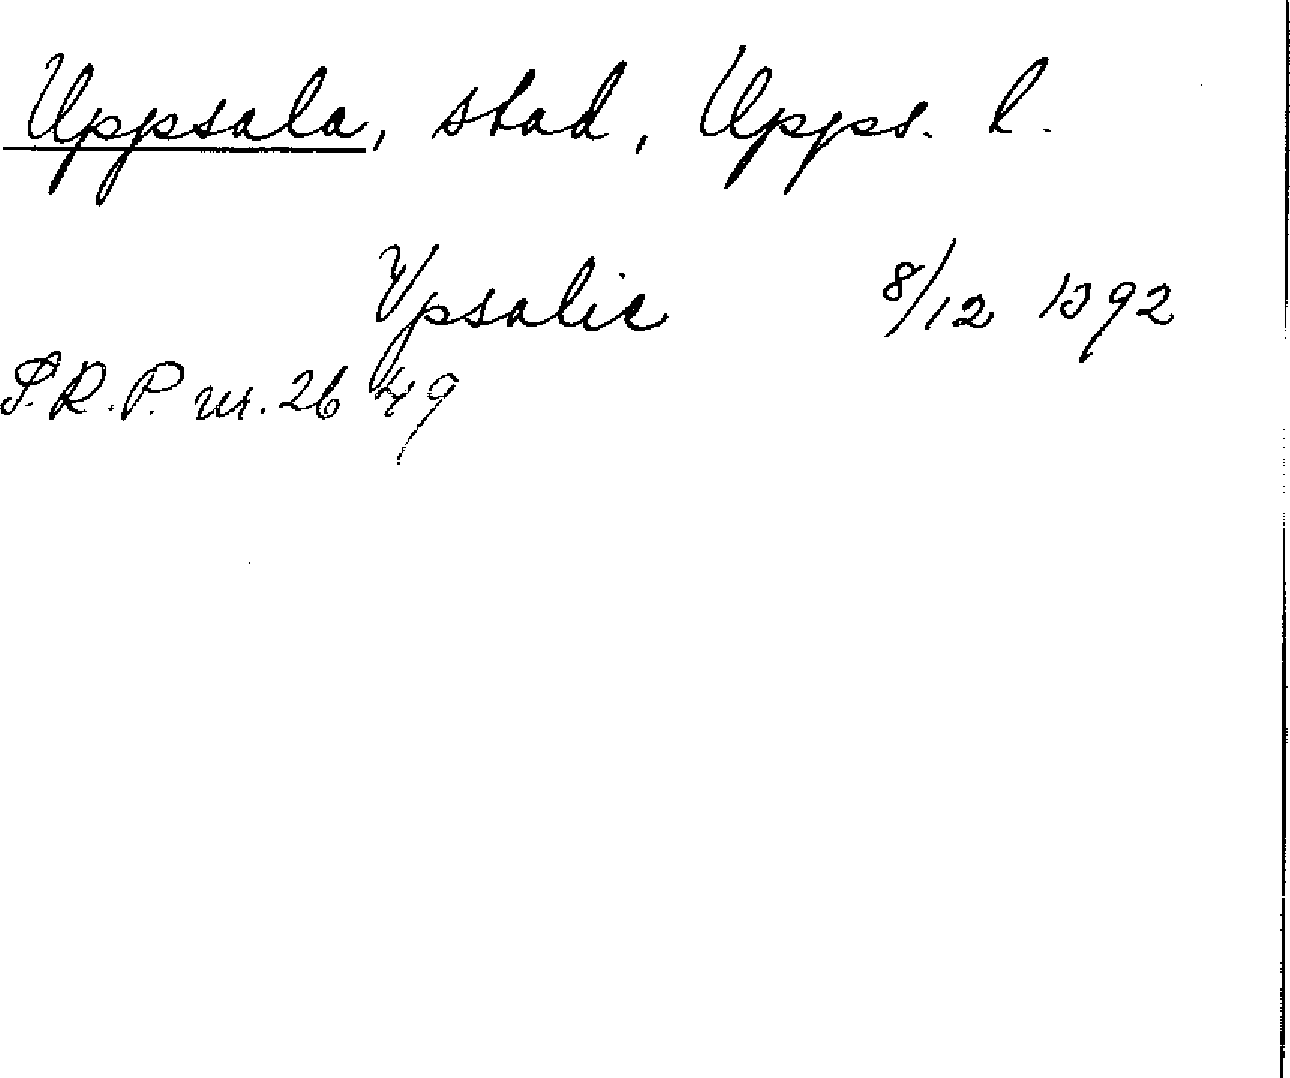 Uppsala, stad, Upps. l.
Vpsalie 8/12 1392
S.R.P. nr. 2649